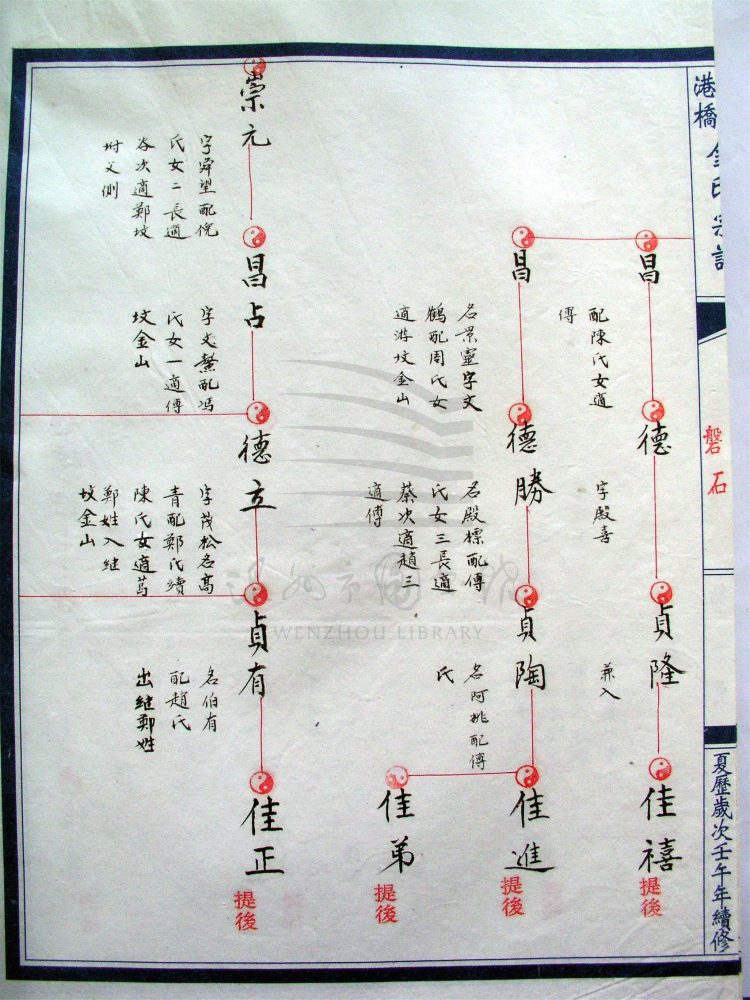 港橋金氏宗譜
磐石
夏歷歲次壬午年續修
昌
配陳氏女適
傅
德
字殿喜
貞隆
兼入
佳禧
提後
昌
名景靈字文
鶴配周氏女
適游坟金山
德勝
名殿標配傅
氏女三長適
蔡次適趙三
適傅
貞陶
名阿桃配傅
氏
佳進
提後
佳弟
提後
崇元
字舜望配倪
氏女二長適
谷次適鄭坟
坿父側
昌占
字文鰲配馮
氏女一適傅
坟金山
德立
字茂松名高
青配鄭氏續
陳氏女適萬
鄭姓入継
坟金山
貞有
名伯有
配趙氏
出継鄭姓
佳正
提後
温州市图书馆
WENZHOU LIBRARY